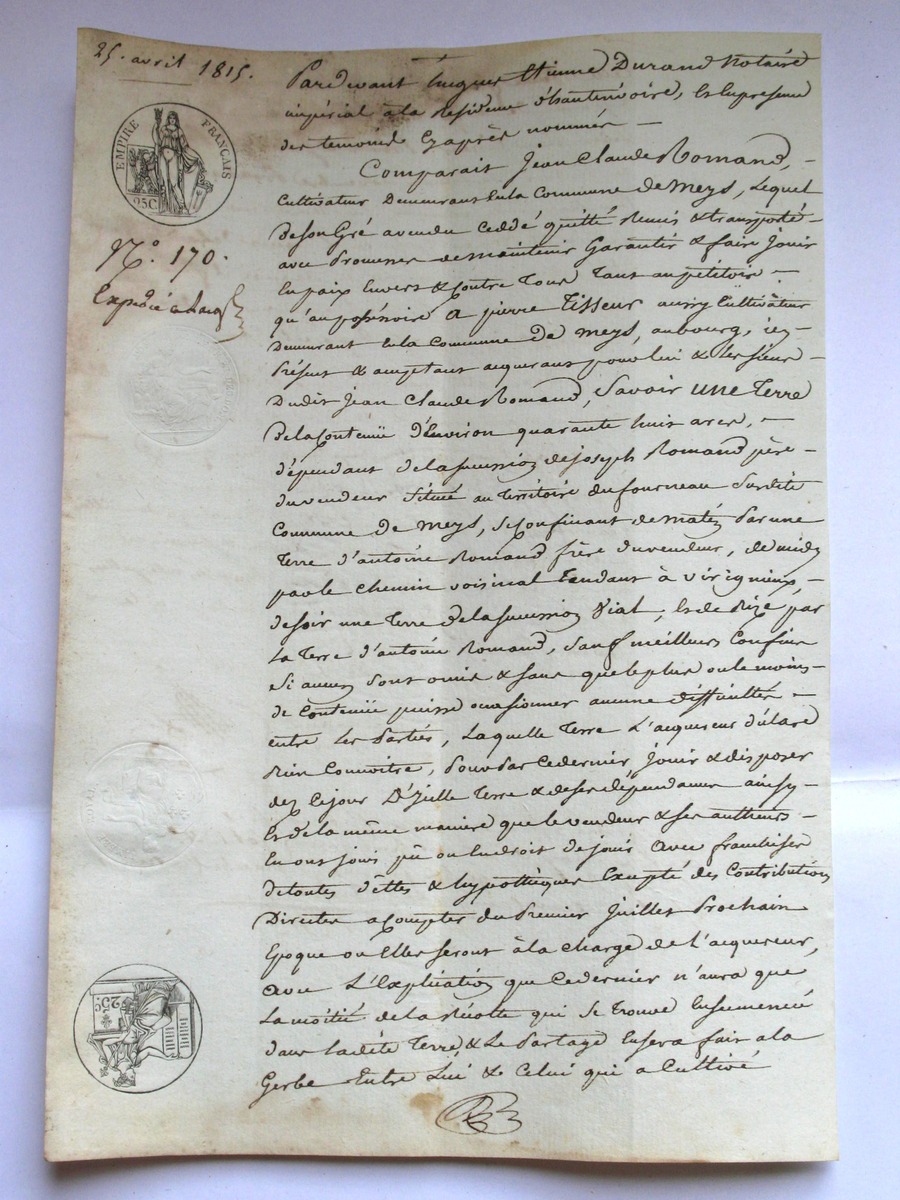 25. avril 1815.
EMPIRE FRANÇAIS
25C.
N.° 170.
Expedié
Pardevant Etienne Durand Notaire
impérial à la Residence , Et En presence
des temoins Cy après nommés —
Comparait Jean Claude Romand, —
Cultivateur Demeurant En la Commune De meys, Lequel
De son Gré a vendu Ceddé quitté Remis & transporté —
avec Promesse de maintenir Garantir & faire Jouir
En paix Envers & Contre Tous Tant au pétitoire —
qu'au possessoire A pierre Tisseur aussy Cultivateur
Demeurant En la Commune De meys, au bourg, icy —
Présent & acceptant acquerant pour lui & Les siens —
Dudit Jean Claude Romand, Savoir une Terre
De la Contenüe D'Environ quarante huit ares, —
dépendant de la succession de joseph Romand père —
du vendeur Située au Territoire du fourneau Susdite
Commune De Meys, se Confinant de matin Par une
Terre d'antoine Romand frère du vendeur, de midy
par le Chemin voisinal Tendant à virigneux, —
de soir une Terre de la succession Vial, Et de Bize par
La Terre d'antoine Romand, Sauf meilleurs Confins
Si aucun sont omis & sans que le plus ou le moins —
de Contenüe puisse occasionner aucune difficultés —
entre Les Parties, Laquelle Terre L'acquereur déclare
Bien Connoitre, Pour Par Ce dernier Jouir & disposer
dez Ce jour D'jcelle Terre & de ses dépendances ainsy —
Et de la même maniere que le vendeur & ses autheurs —
En ont joui pû ou En droit de jouir avec franchises
de toutes dettes & hypothèques Excepté des Contributions
Directes a Compter du Premier Juillet Prochain
Epoque ou Elles seront à la charge de L'acquereur,
avec L'Explication que Ce dernier n'aura que
La moitié de la Récolte qui Se Trouve Ensemencée
dans Ladite Terre & Le Partage En sera fait a la
Gerbe Entre Lui & Celui qui a Cultivé
25C.